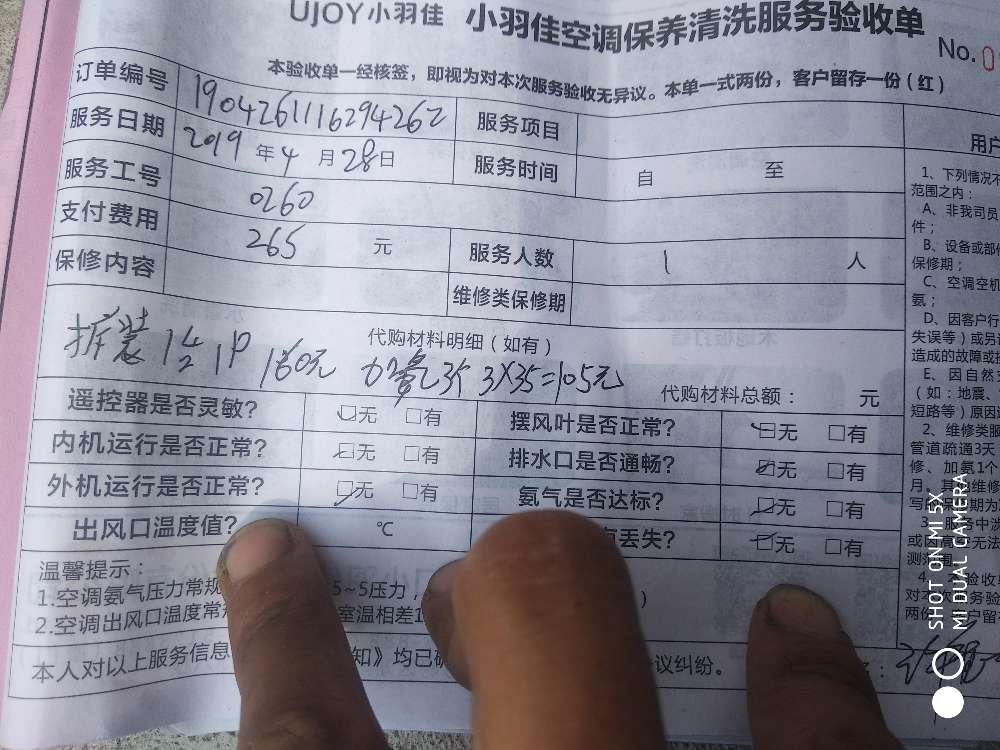 UJOY小羽佳 小羽佳空调保养清洗服务验收单
No.0
本验收单一经核签，即视为对本次服务验收无异议。本单一式两份，客户留存一份（红）
订单编号 1904261116294262 服务项目
服务日期 2019年4月28日 服务时间 自 至
服务工号 0260
支付费用 265 元 服务人数 1 人
保修内容 维修类保修期
代购材料明细（如有）
拆装1½ 1P 160元 加氨3个 3X35=105元
代购材料总额： 元
遥控器是否灵敏? 无 有 摆风叶是否正常? 无 有
内机运行是否正常? 无 有 排水口是否通畅? 无 有
外机运行是否正常? 无 有 氨气是否达标? 无 有
出风口温度值? ℃ 有丢失? 无 有
温馨提示：
1.空调氨气压力常规 5~5压力，
2.空调出风口温度常 室温相差1
本人对以上服务信息 知》均已 议纠纷。
用户
1、下列情况不
范围之内：
A、非我司员
件；
B、设备或部件
保修期；
C、空调空机
氨；
D、因客户行
失误等）或另
造成的故障或
E、因自然
（如：地震、
短路等）原因
2、维修类服
管道疏通3天
修、加氨1个
月。其
写
3、服务中
或因
测范围
4、本验收
对本次服务验
两份，客户留存
SHOT ON MI 5X
MI DUAL CAMERA